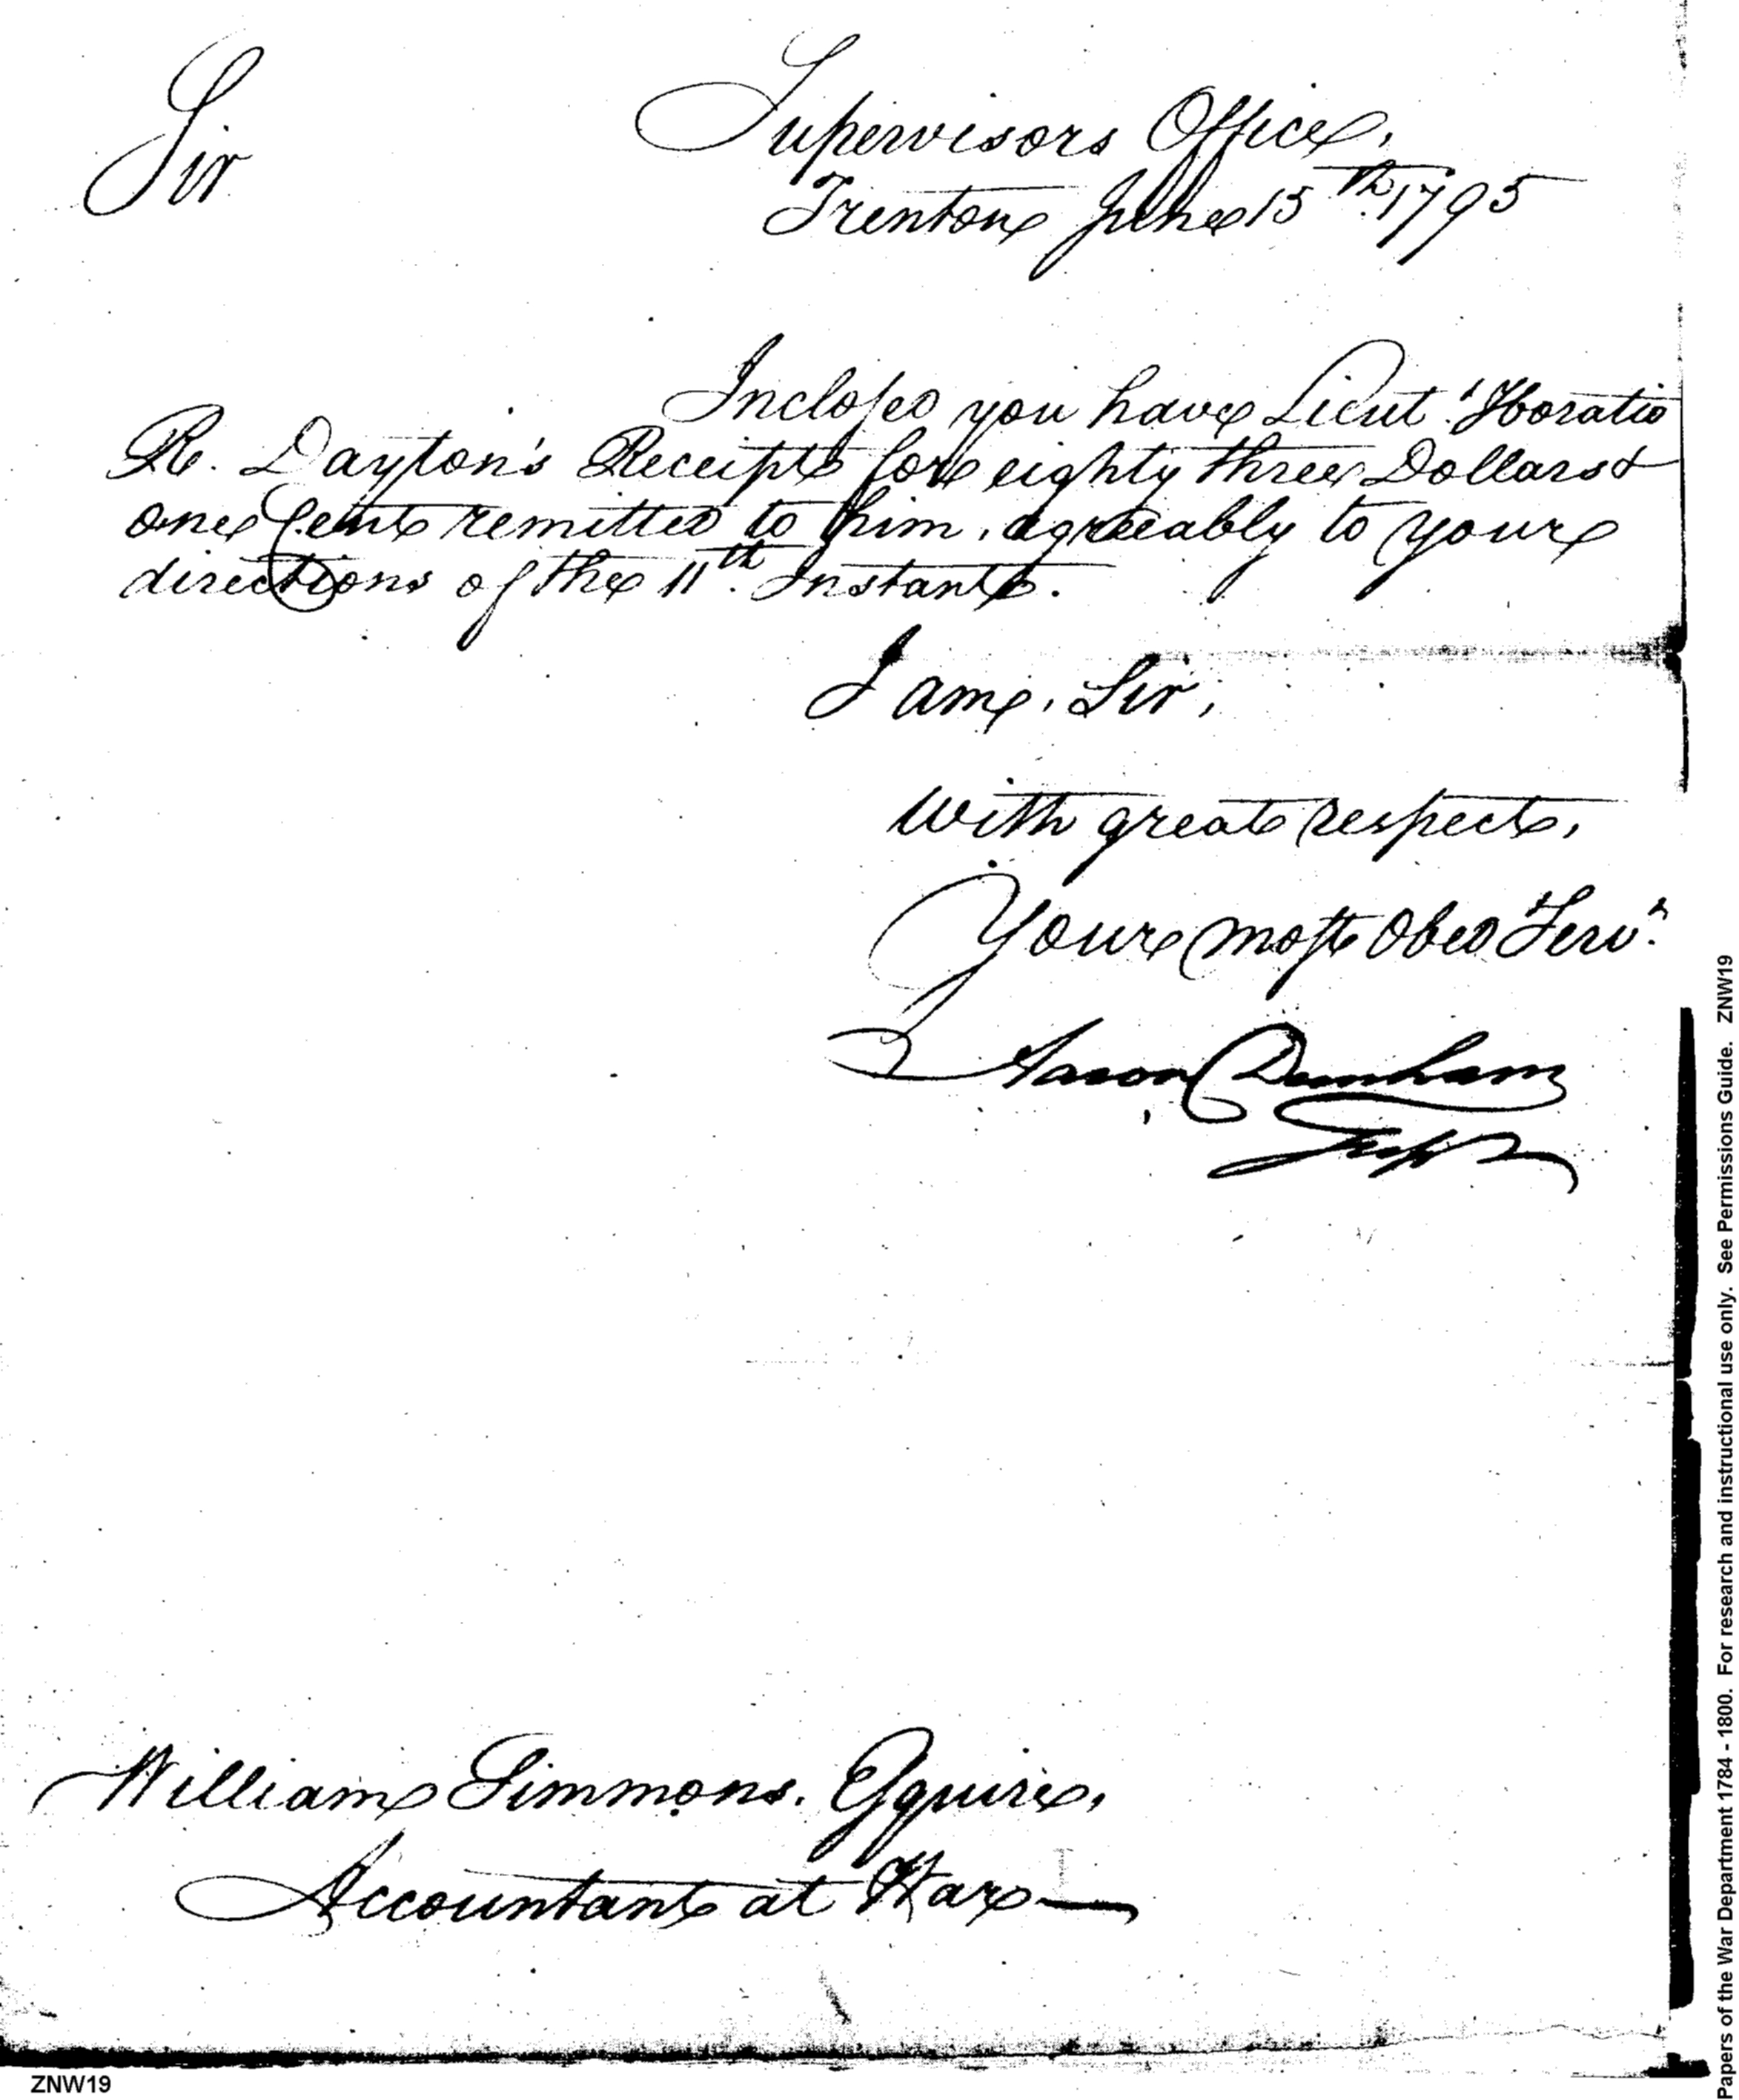 Sir
Supervisors Office,
Trenton June 15th. 1795
Inclosed you have Lieut. Horatio
R. Dayton's Receipt for eighty three Dollars &
one Cent remitted to him, agreeably to your
directions of the 11th. Instant.
I am, Sir,
with great respect,
Your most Obed Serv.t
Aaron Dunham
Supr
William Simmons. Esquire,
Accountant at War
ZNW19
Papers of the War Department 1784 - 1800. For research and instructional use only. See Permissions Guide. ZNW19